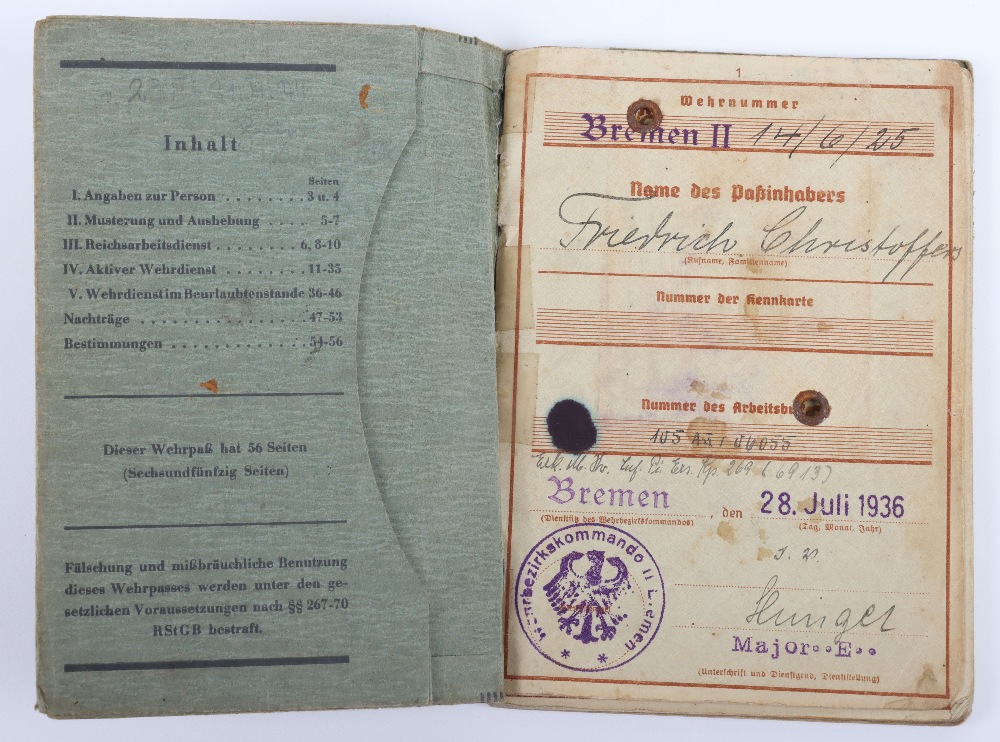 Inhalt
Seiten
I. Angaben zur Person . . . . . . . . 3 u. 4
II. Musterung und Aushebung . . . . 5-7
III. Reichsarbeitsdienst . . . . . . . . 6, 8-10
IV. Aktiver Wehrdienst . . . . . . . . 11-35
V. Wehrdienst im Beurlaubtenstande 36-46
Nachträge . . . . . . . . . . . . . . . . 47-53
Bestimmungen . . . . . . . . . . . . . 54-56
Dieser Wehrpaß hat 56 Seiten
(Sechsundfünfzig Seiten)
Fälschung und mißbräuchliche Benutzung
dieses Wehrpasses werden unter den ge-
setzlichen Voraussetzungen nach §§ 267-70
RStGB bestraft.
1
Wehrnummer
Bremen II 14/6/25
Name des Paßinhabers
Friedrich Christoffers
(Rufname, Familienname)
Nummer der Kennkarte
Nummer des
Ers. Kp. 269 (6913)
Bremen, den 28. Juli 1936
(Dienstsitz des Wehrbezirkskommandos) (Tag, Monat, Jahr)
Wehrbezirkskommando II Bremen
Major
(Unterschrift und Dienstgrad, Dienststellung)